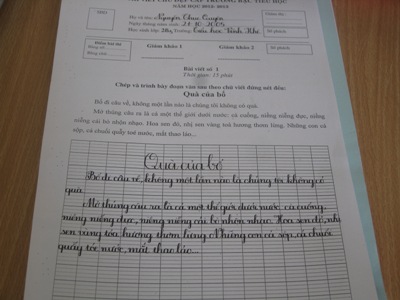 NĂM HỌC 2012-2013
Họ và tên: Nguyễn Thục Quyên
Ngày tháng năm sinh: 21.10.2005
Số phách
Điểm bài thi
Bằng số
Bằng chữ
Giám khảo 1
Giám khảo 2
Số phách
Bài viết số 1
Thời gian: 15 phút
Chép và trình bày đoạn văn sau theo chữ viết đứng nét đều:
Quà của bố
Bố đi câu về, không một lần nào là chúng tôi không có quà.
Mở thúng câu ra là cả một thế giới dưới nước: cà cuống, niềng niễng đực, niềng
niễng cái bò nhộn nhạo. Hoa sen đỏ, nhị sen vàng toả hương thơm lừng. Những con cá
sộp, cá chuối quẫy toé nước, mắt thao láo...
Quà của bố
Bố đi câu về, không một lần nào là chúng tôi không có
quà.
Mở thúng câu ra là cả một thế giới dưới nước: cà cuống,
niềng niễng đực, niềng niễng cái bò nhộn nhạo. Hoa sen đỏ, nhị
sen vàng toả hương thơm lừng. Những con cá sộp, cá chuối
quẫy toé nước, mắt thao láo...